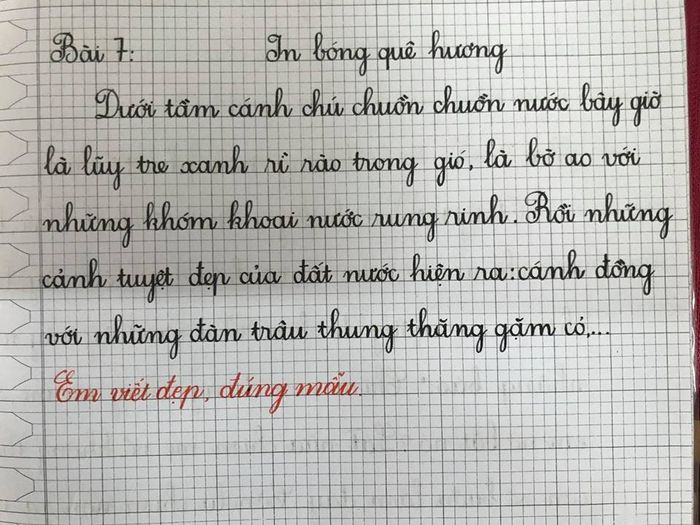 Bài 7: In bóng quê hương
Dưới tầm cánh chú chuồn chuồn nước bây giờ
là lũy tre xanh rì rào trong gió, là bờ ao với
những khóm khoai nước rung rinh. Rồi những
cảnh tuyệt đẹp của đất nước hiện ra: cánh đồng
với những đàn trâu thung thăng gặm cỏ,...
Em viết đẹp, đúng mẫu.